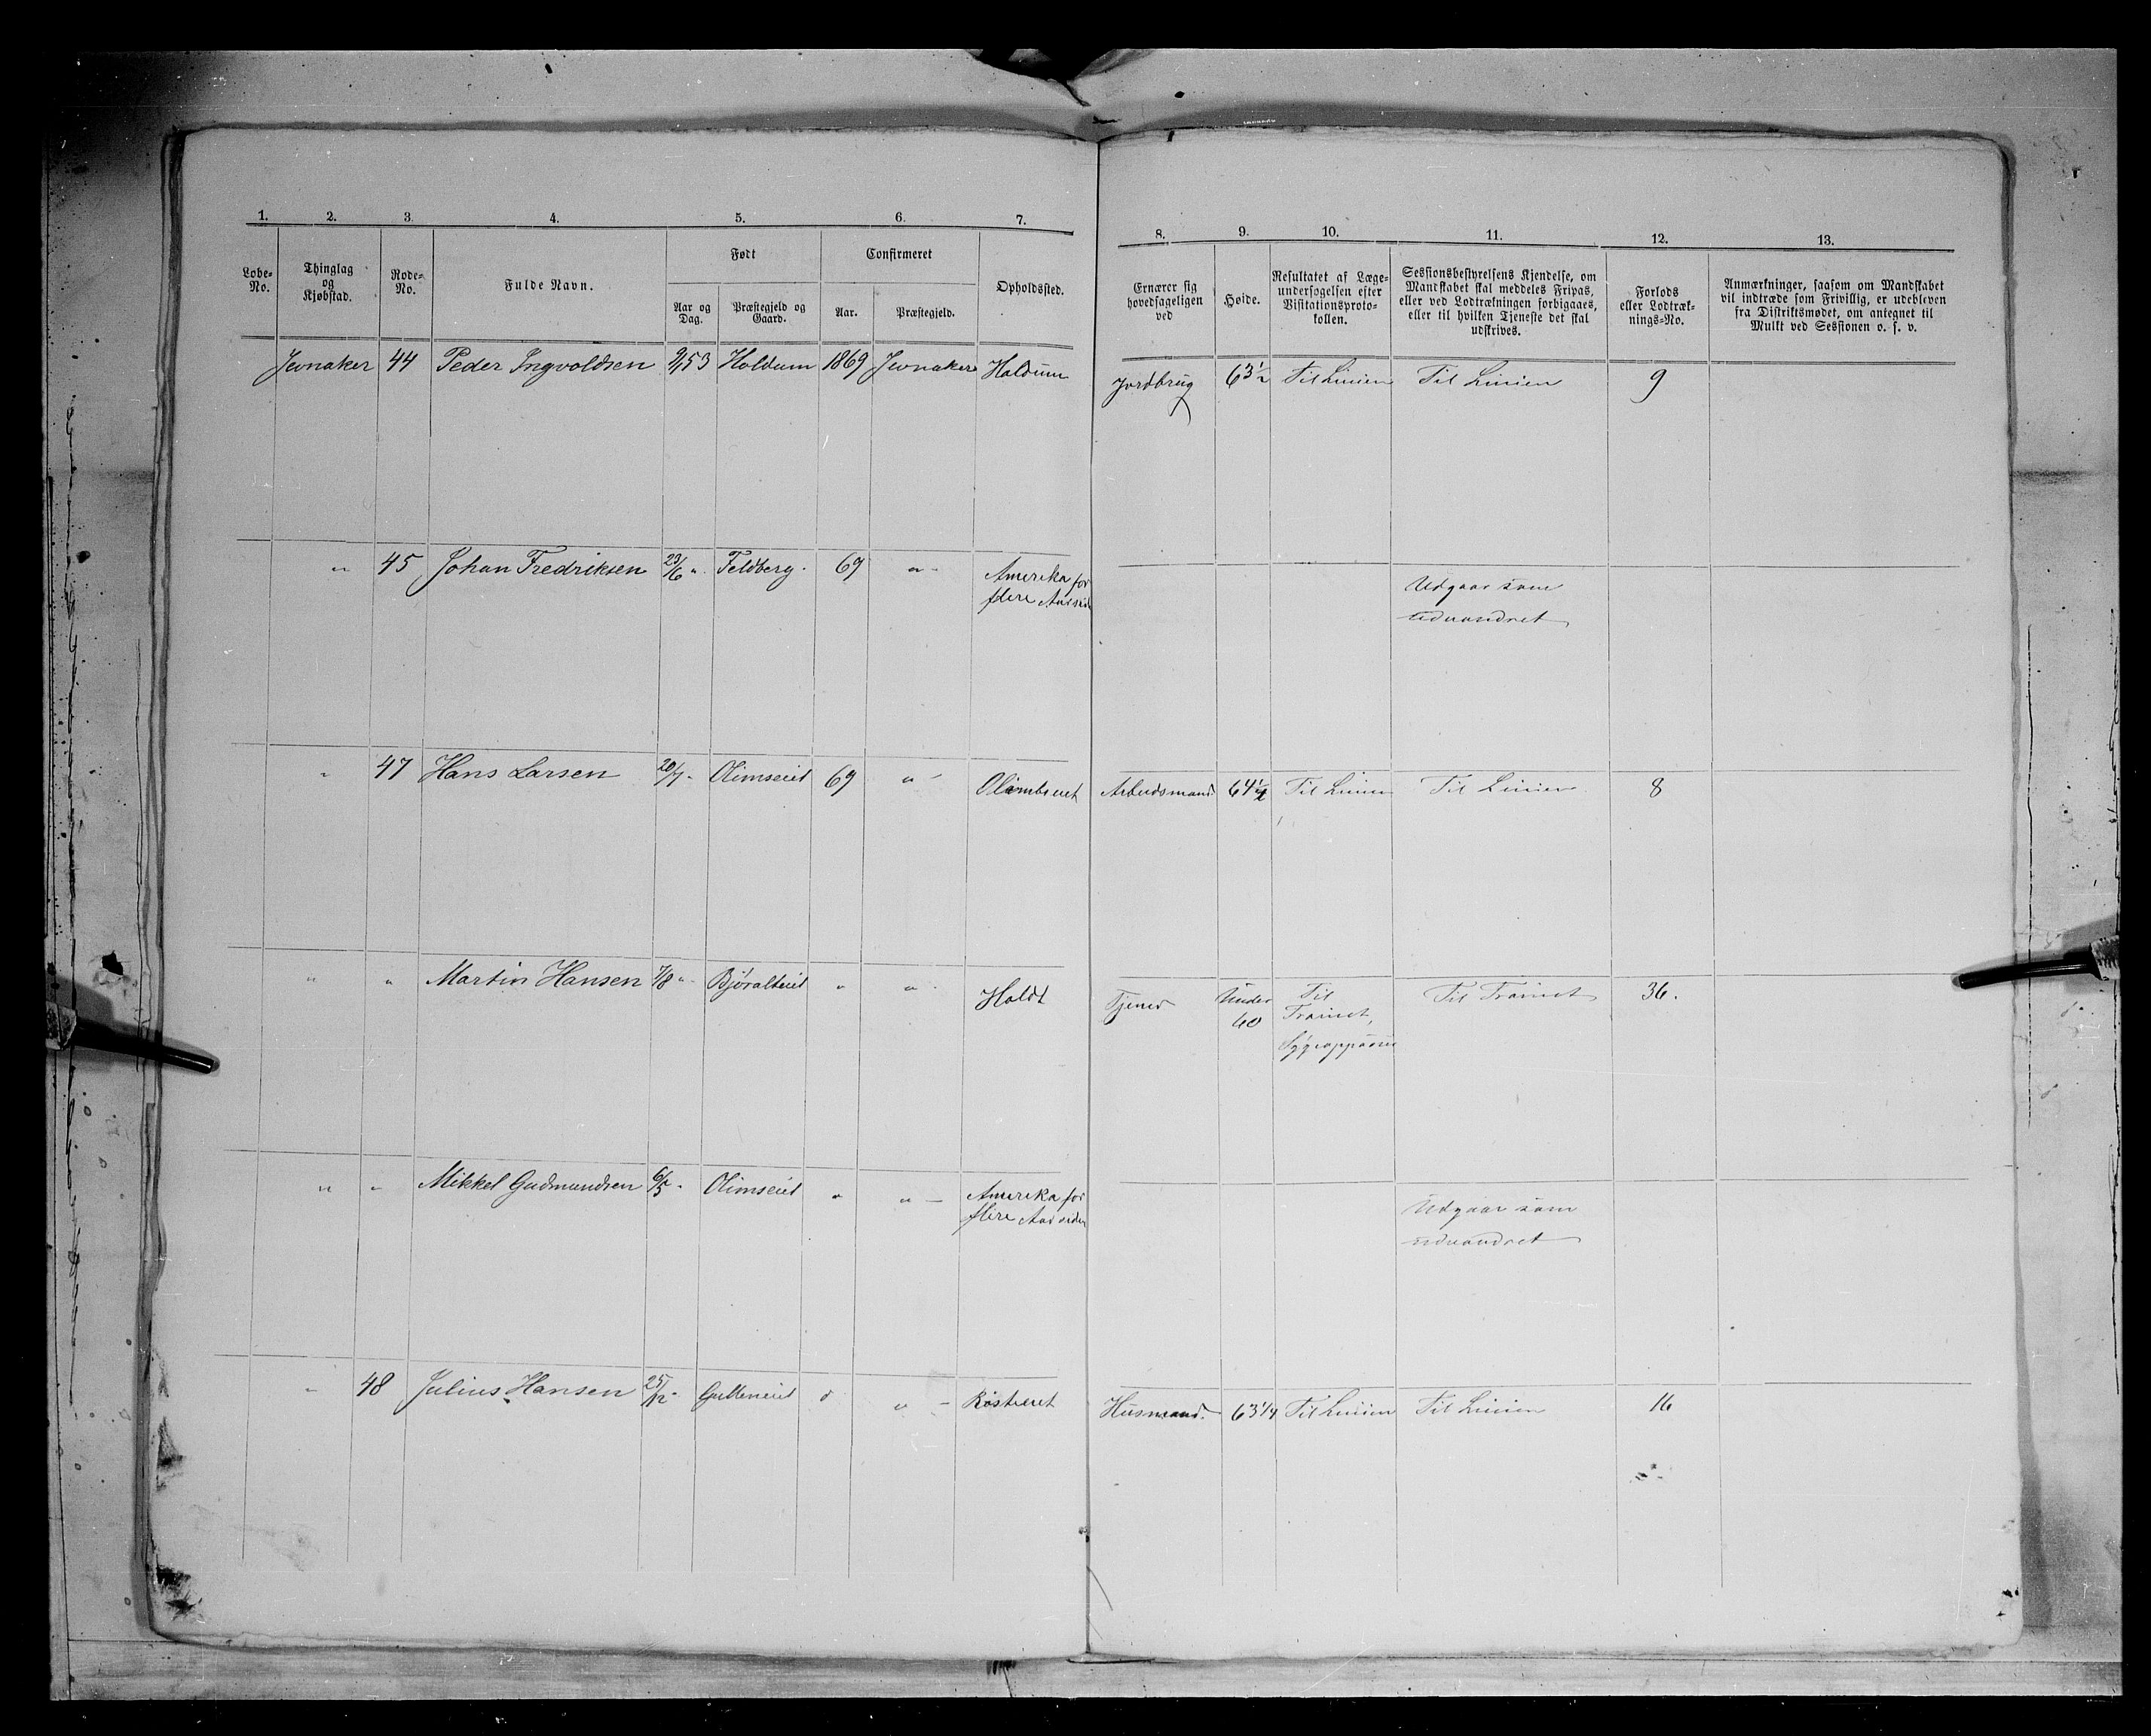 1. 2. 3. 4. 5. 6. 7. 8. 9. 10. 11. 12. 13.
Løbe-No.
Thinglag og Kjøbstad.
Rode-No.
Fulde Navn.
Født
Aar og Dag.
Præstegjeld og Gaard.
Confirmeret
Aar.
Præstegjeld.
Opholdssted.
Ernærer sig hovedsageligen ved
Høide.
Resultatet af Læge-undersøgelsen efter Visitationsproto-kollen.
Sessionsbestyrelsens Kjendelse, om Mandskabet skal meddeles Fripas, eller ved Lodtrækningen forbigaaes, eller til hvilken Tjeneste det skal udskrives.
Forlods eller Lodtræk-nings-No.
Anmærkninger, saasom om Mandskabet vil indtræde som Frivillig, er udebleven fra Distriktsmødet, om antegnet til Mulkt ved Sessionen o. s. v.
Jevnaker 44 Peder Ingvoldsen 53 Holdum 1869 Jevnaker Holdum Jordbrug 63½ Til Linien Til Linien 9
" 45 Johan Fredriksen 23/6 " Feldberg 69 " Amerika for
flere Aar siden
Udgaar som
udvandret
" 47 Hans Larsen 20/7 " Olimseiet 69 " Arbeidsmand Til Linien Til Linien 8
" " Martin Hansen 7/8 " " " Holdt Tjener Under
60
Til
Trainet,
Til Trainet 36.
" " Mikkel Gudmundsen " Olimseiet " " Amerika for
flere Aar siden
Udgaar som
udvandret
" 48 Julius Hansen 25/12 " " " Husmand. 63 1/4 Til Linien Til Linien 16